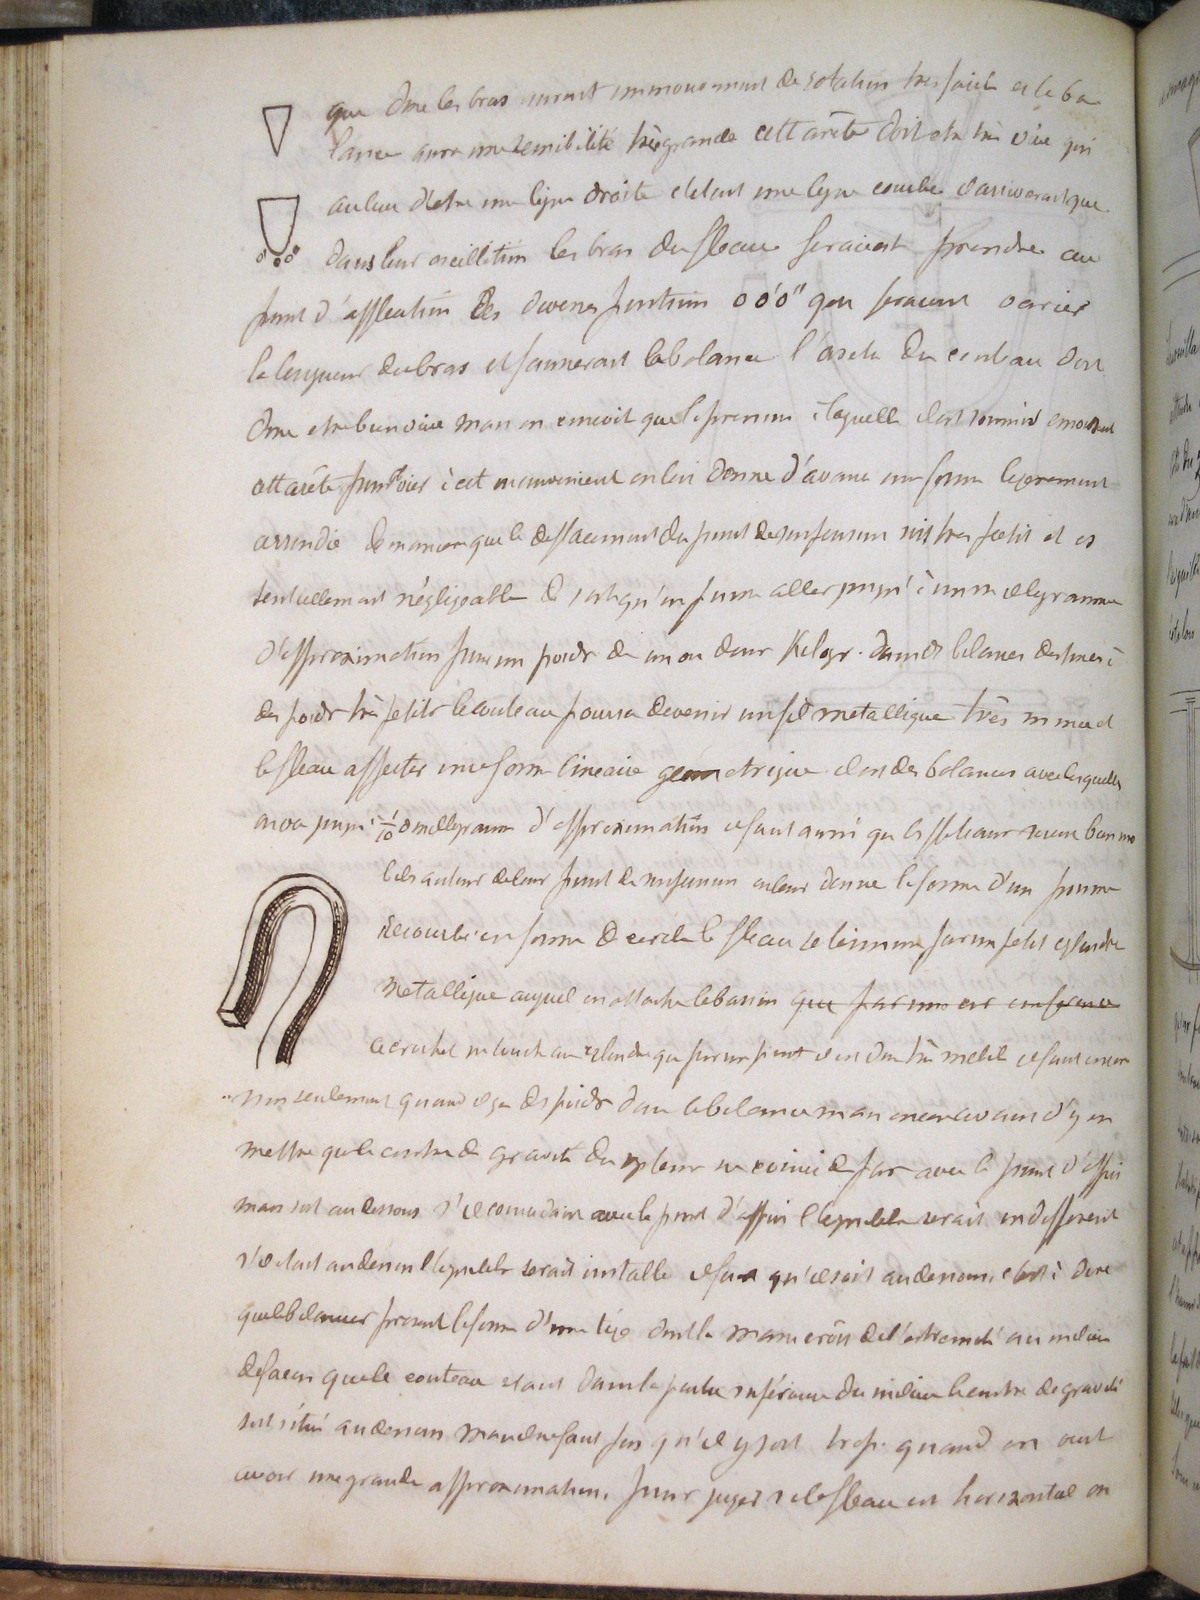 que donc les bras auront un mouvement de rotation très facile et la ba
lance aura une sensibilité très grande cette arête doit etre très vive qui
au lieu d'etre une ligne droite c'etait une ligne courbe il arriverait que
dans leur oscillation les bras du fleau feraient prendre au
point d'application des diverses position o o' o'' qui feraient varier
la longueur du bras et fausserait la balance l'arete du couteau doit
donc etre bien vive mais on concoit que la pression à laquelle il est soumis
cette arête pour obvier à cet inconvenient on lui donne d'avance une forme legerement
arrondie de maniere que le deplacement du point de suspension soit tres petit et
négligeable de sorte qu'on puisse aller jusqu'à un milligramme
d'approximation pour un poids de un ou deux Kilogr. dans les balances destinees à
des poids très petits le couteau pourra devenir un fil metallique très mince et
le fleau affecter une forme lineaire géometrique il est des balances avec lesquelles
on va jusqu'à 1/10 de milligramme d'approximation il faut aussi que les fleaux soient bien mo
biles autour de leur point de suspension on leur donne la forme d'un prisme
recourbé en forme de cercle le fleau se termine par un petit cylindre
metallique auquel on attache le bassin que par
ce crochet ne touche au cylindre que par un point il est donc très mobile il faut encore
non seulement quand il y a des poids dans la balance mais encore avant d'y en
mettre que le centre de gravité du systeme ne coincide pas avec le point d'appui
mais soit au dessous s'il coincidait avec le point d'appui l'equilibre serait indifferent
s'il etait au dessus l'equilibre serait instable il faut qu'il soit au dessous c'est à dire
que la balance prenant la forme d'une tige dont la masse croit de l'extremité au milieu
de facon que le couteau etant dans la partie superieure du milieu le centre de gravité
soit situé au dessous mais il ne faut pas qu'il y soit trop. quand on veut
avoir une grande approximation. Pour juger si le fleau est horizontal on